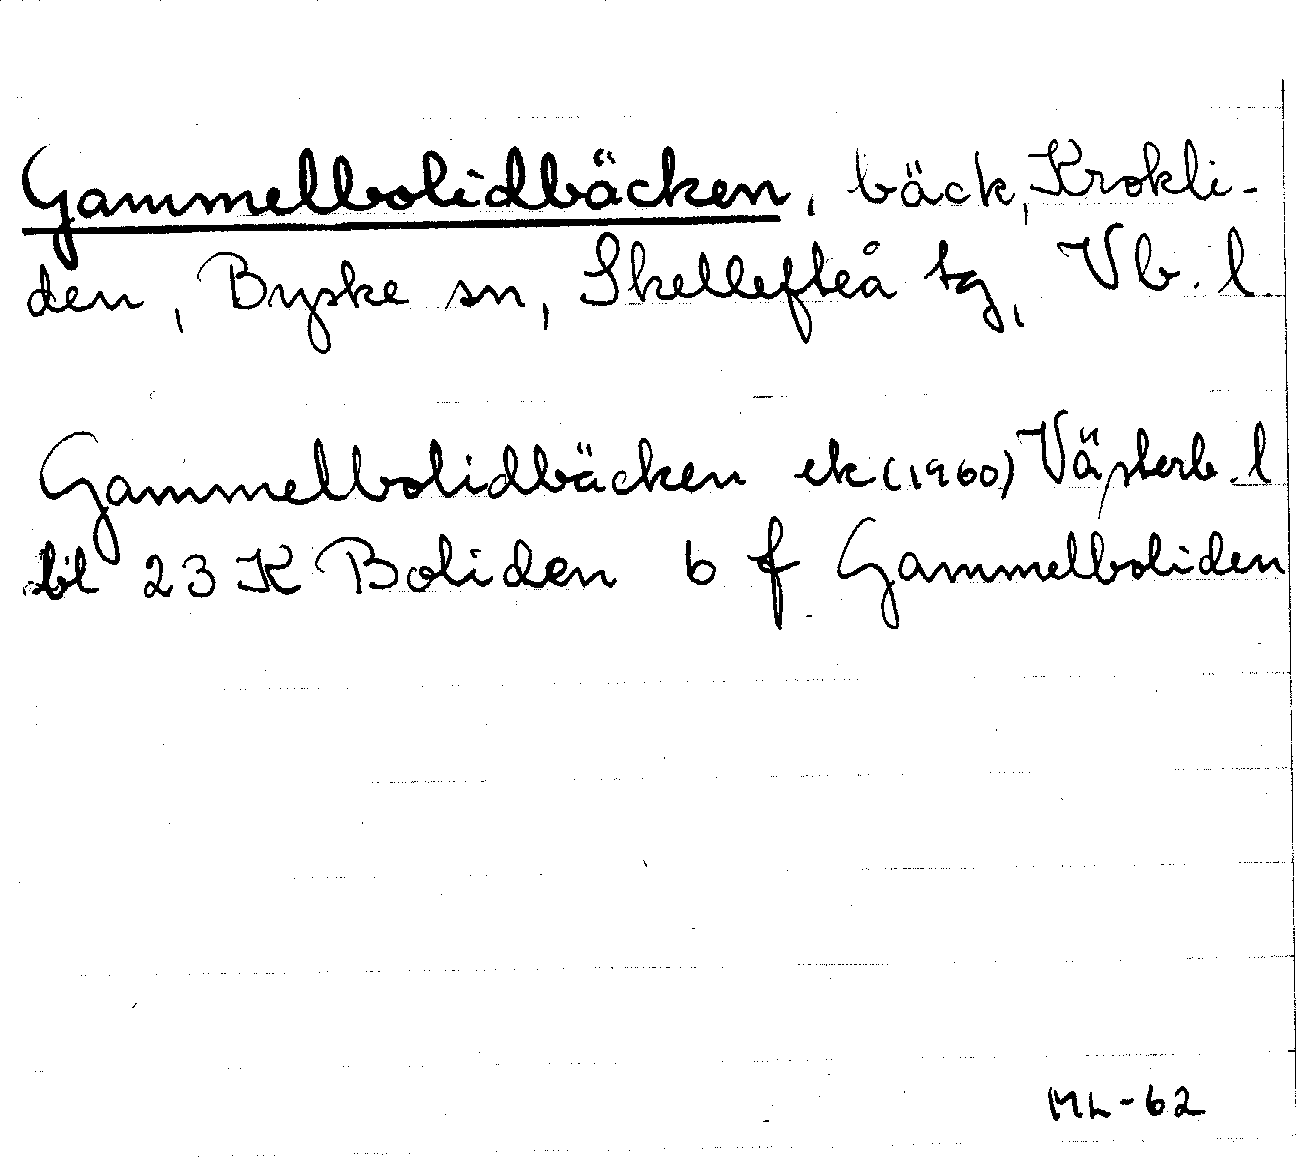 Gammelbolidbäcken, bäck, Krokli-
den, Byske sn, Skellefteå tg, Vb. l
Gammelbolidbäcken ek (1960) Västerb. l
bl 23 K Boliden b f Gammelboliden
ML-62